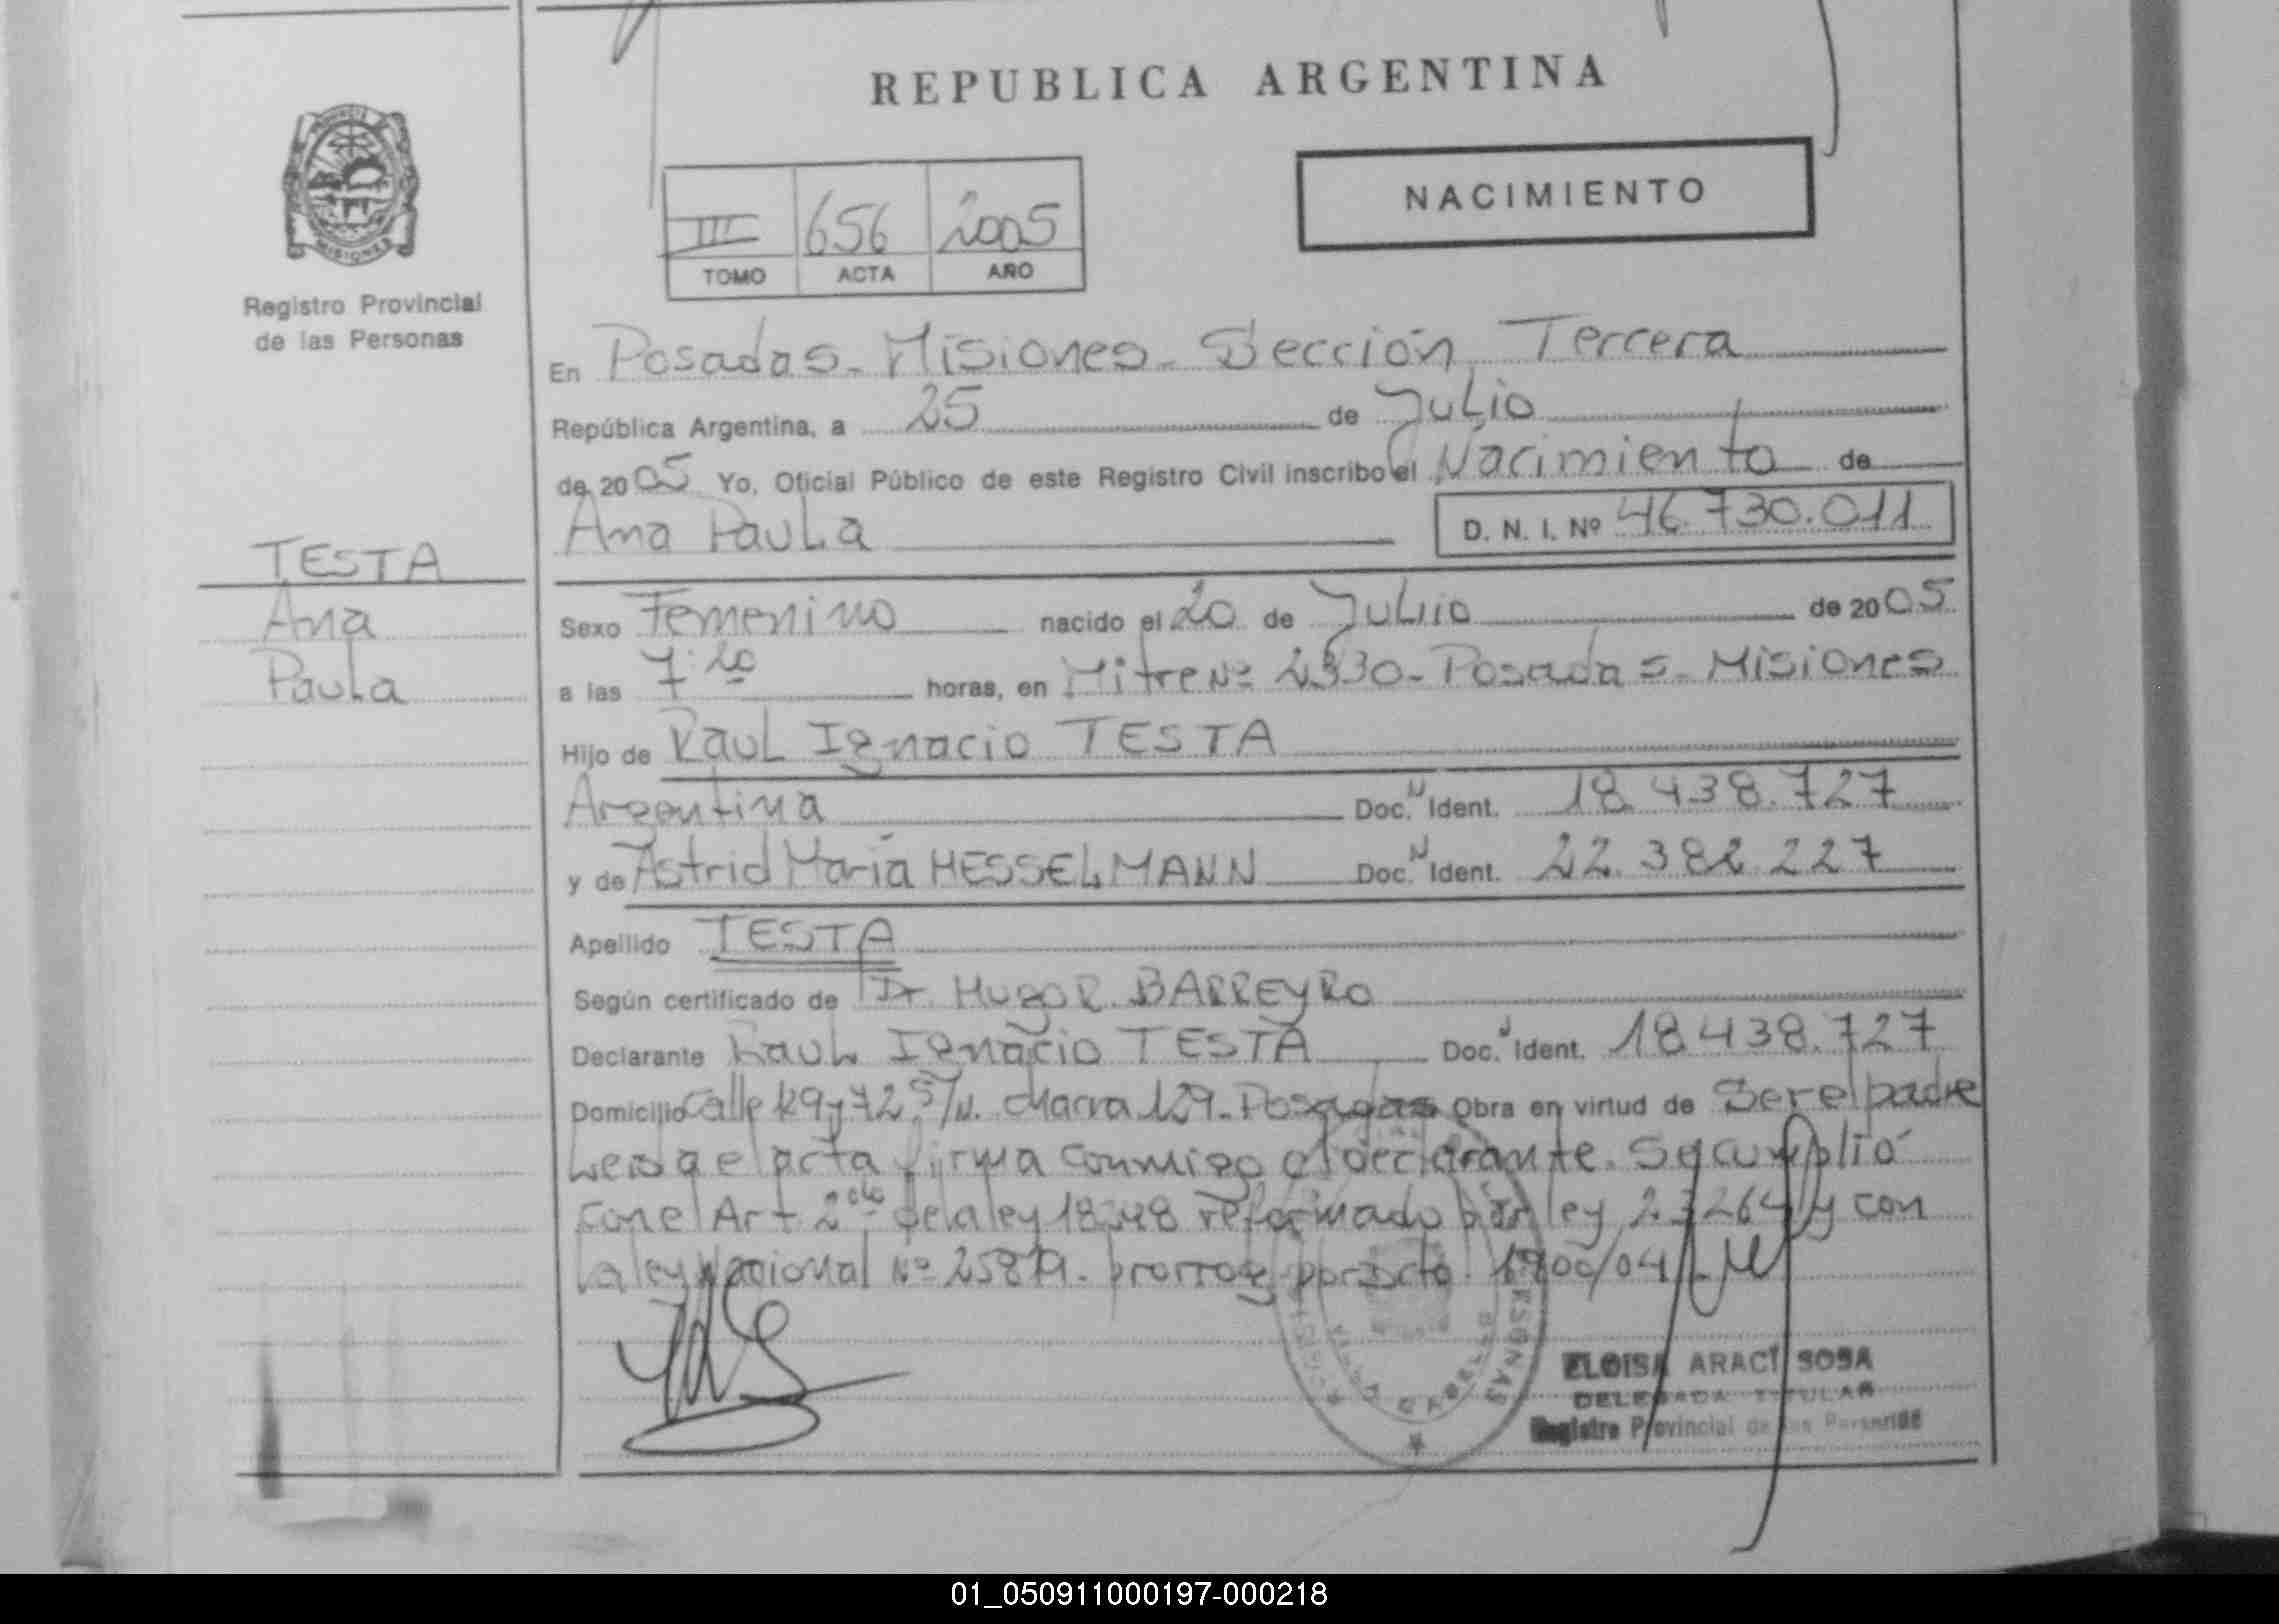 REPUBLICA ARGENTINA
NACIMIENTO
III 656 2005
TOMO ACTA AÑO
MISIONES
Registro Provincial
de las Personas
En Posadas - Misiones - Sección Tercera
República Argentina, a 25 de Julio
de 2005 Yo, Oficial Público de este Registro Civil inscribo el Nacimiento de
Ana Paula D. N. I. Nº 46.730.011
TESTA
Ana
Paula
Sexo Femenino nacido el 20 de Julio de 2005
a las 7:20 horas, en Mitre Nº 2330 - Posadas - Misiones
Hijo de Raul Ignacio TESTA
Argentina Doc. N Ident. 18.438.727
y de Astrid María HESSELMANN Doc. N Ident. 22.382.227
Apellido TESTA
Según certificado de Dr. Hugo R. BARREYRO
Declarante Raul Ignacio TESTA Doc. Ident. 18.438.727
Domicilio Calle 129 y 72 S/N. chacra 129 - Posadas Obra en virtud de Ser el padre
Leida el acta firma conmigo el declarante. Se cumplió
con el Art 2do de la ley 18248 reformado por ley 23264 y con
la ley Nacional Nº 25819. prorrog por Dcto. 1900/04
ELOISA ARACI SOSA
DELEGADA TITULAR
Registro Provincial de las Personas
01_050911000197-000218